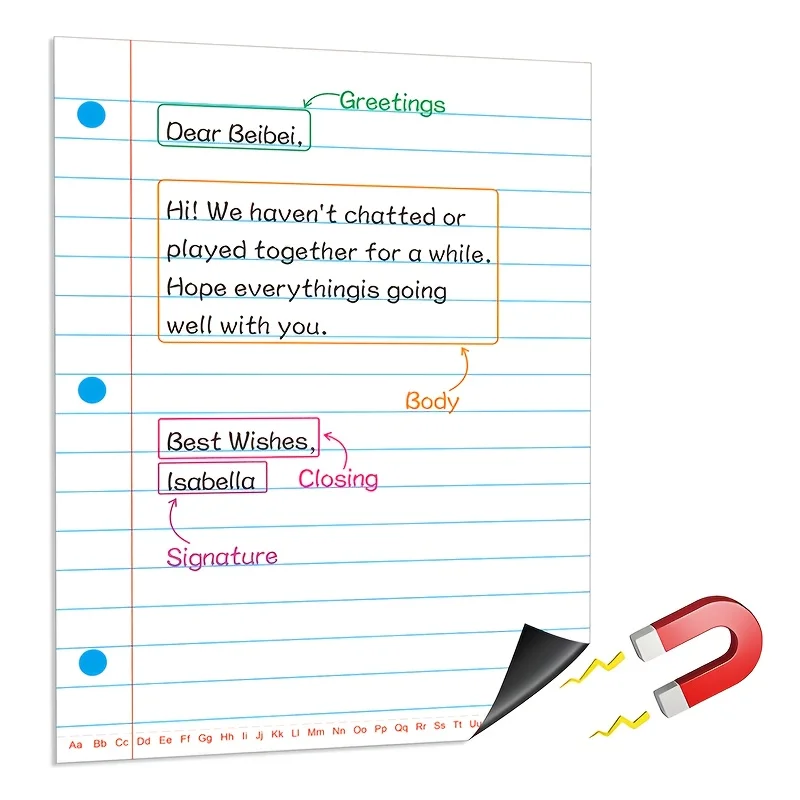 Greetings
Dear Beibei,
Hi! We haven't chatted or
played together for a while.
Hope everythingis going
well with you.
Body
Best Wishes,
Isabella
Closing
Signature
Aa Bb Cc Dd Ee Ff Gg Hh Ii Jj Kk Ll Mm Nn Oo Pp Qq Rr Ss Tt Uu